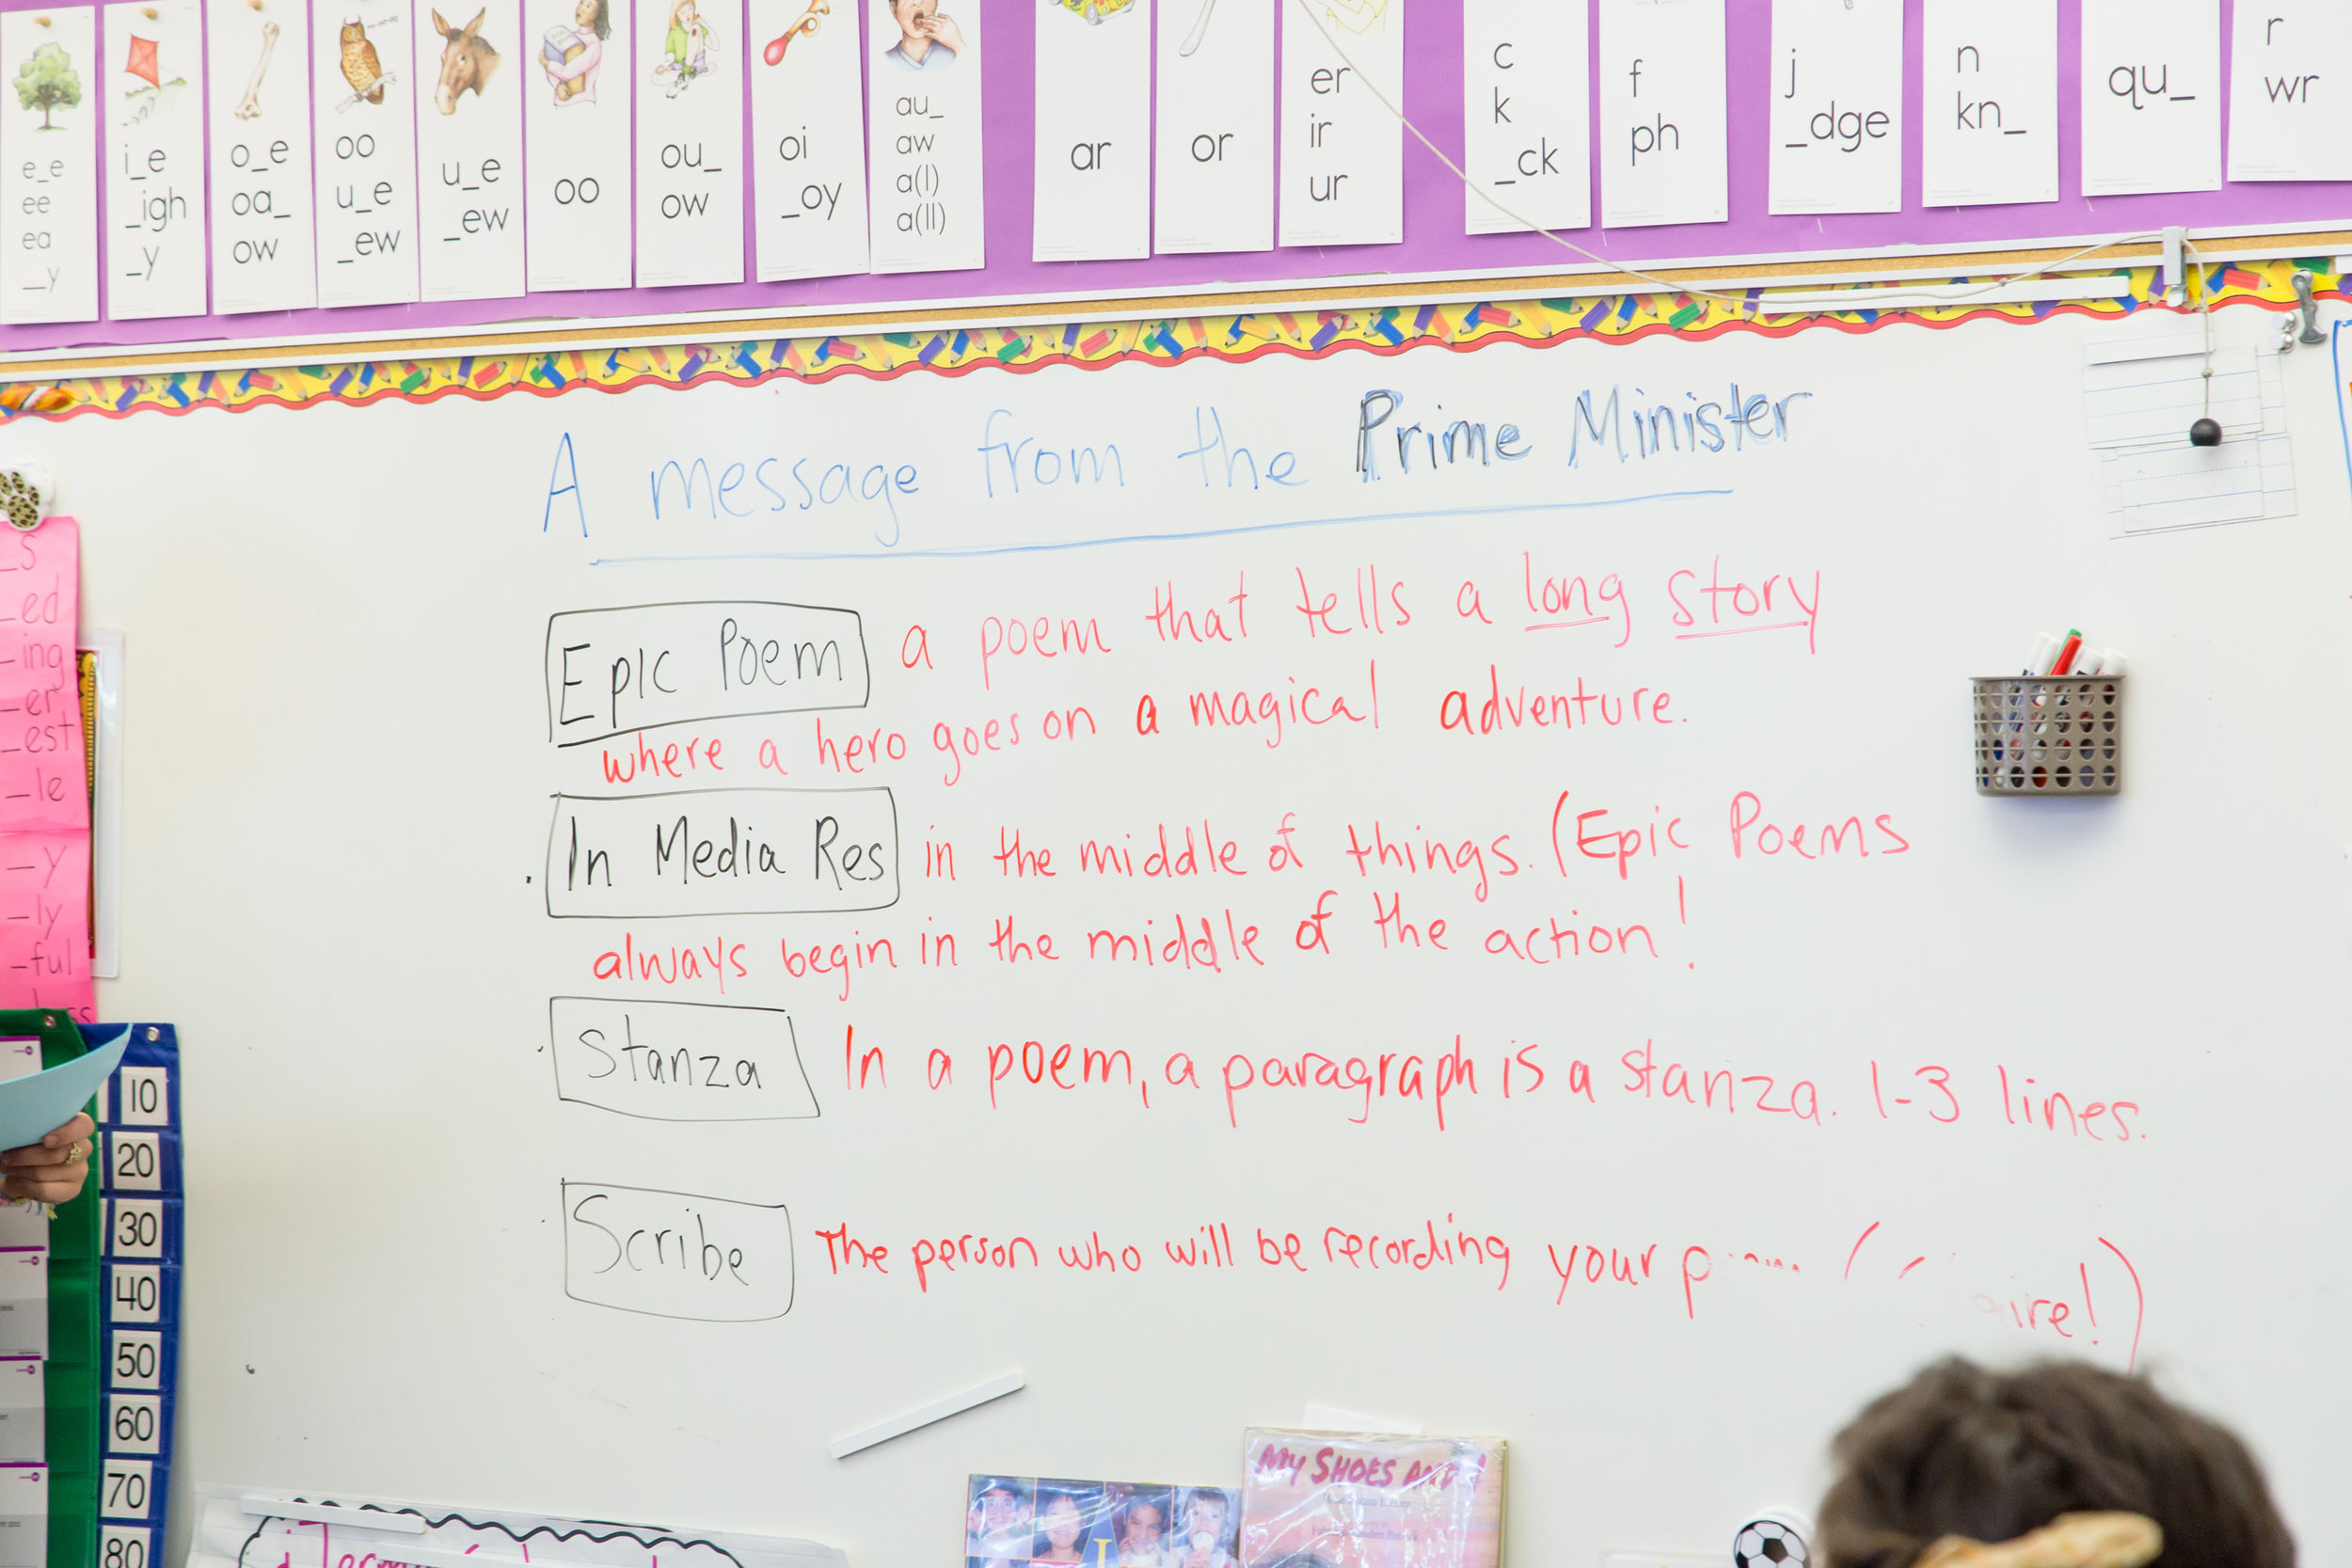 e_e
ee
ea
_y
i_e
_igh
_y
o_e
oa_
ow
oo
u_e
_ew
u_e
_ew
oo
ou_
ow
oi
_oy
au_
aw
a(l)
a(ll)
ar
or
er
ir
ur
c
k
_ck
f
ph
j
_dge
n
kn_
qu_
r
wr
A message from the Prime Minister
Epic Poem a poem that tells a long story
where a hero goes on a magical adventure.
In Media Res in the middle of things. (Epic Poems
always begin in the middle of the action!
Stanza In a poem, a paragraph is a stanza. 1-3 lines.
Scribe The person who will be recording your
_s
_ed
-ing
-er
_est
-le
-y
-ly
-ful
10
20
30
40
50
60
70
80
MY SHOES AND I